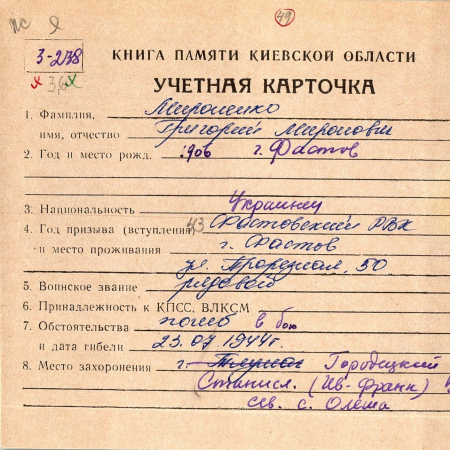 ПС
49
3-278
КНИГА ПАМЯТИ КИЕВСКОЙ ОБЛАСТИ
УЧЕТНАЯ КАРТОЧКА
1. Фамилия, Мироненко
имя, отчество Григорий Миронович
2. Год и место рожд. 1906 г. Фастов
3. Национальность Украинец
4. Год призыва (вступления) 43 Фастовский РВК
и место проживания г. Фастов
ул. Прорезная, 50
5. Воинское звание рядовой
6. Принадлежность к КПСС, ВЛКСМ
7. Обстоятельства погиб в бою
и дата гибели 23.07 1944г.
8. Место захоронения Городецкий
Станисл. (Ив-Франк)
с. Олеша